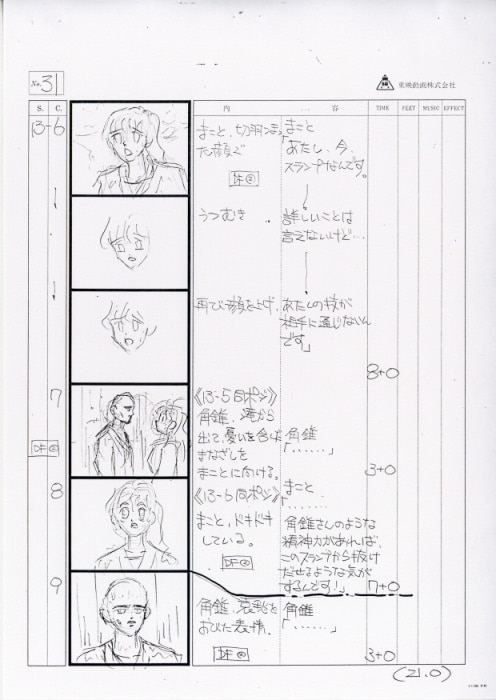 No. 31
東映動画株式会社
S. C. 内 容 TIME FEET MUSIC EFFECT
13-6
まこと、切羽つまっ
た顔で
DF
まこと
「あたし、今、
スランプなんです。
うつむき
詳しいことは
言えないけど…
再び顔を上げ、
あたしの技が
相手に通じないん
です」
8+0
7
《13-5同ポジ》
角錐、滝から
出て、憂いを含んだ
まなざしを
まことに向ける。
角錐
「……」
3+0
8
《13-6同ポジ》
まこと、ドキドキ
している。
DF
まこと
「……
角錐さんのような
精神力があれば、
このスランプから抜け
だせるような気が
するんです!」
7+0
9
角錐、哀愁を
おびた表情。
DF
角錐
「……」
3+0
(21.0)